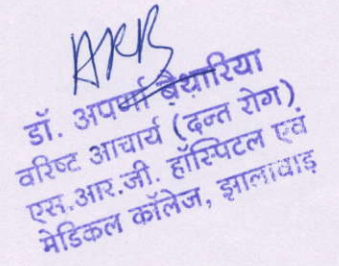 ARB
डॉ. अपर्णा बैयारिया
वरिष्ट आचार्य (दन्त रोग)
एस.आर.जी. हॉस्पिटल एवं
मेडिकल कॉलेज, झालावाड़